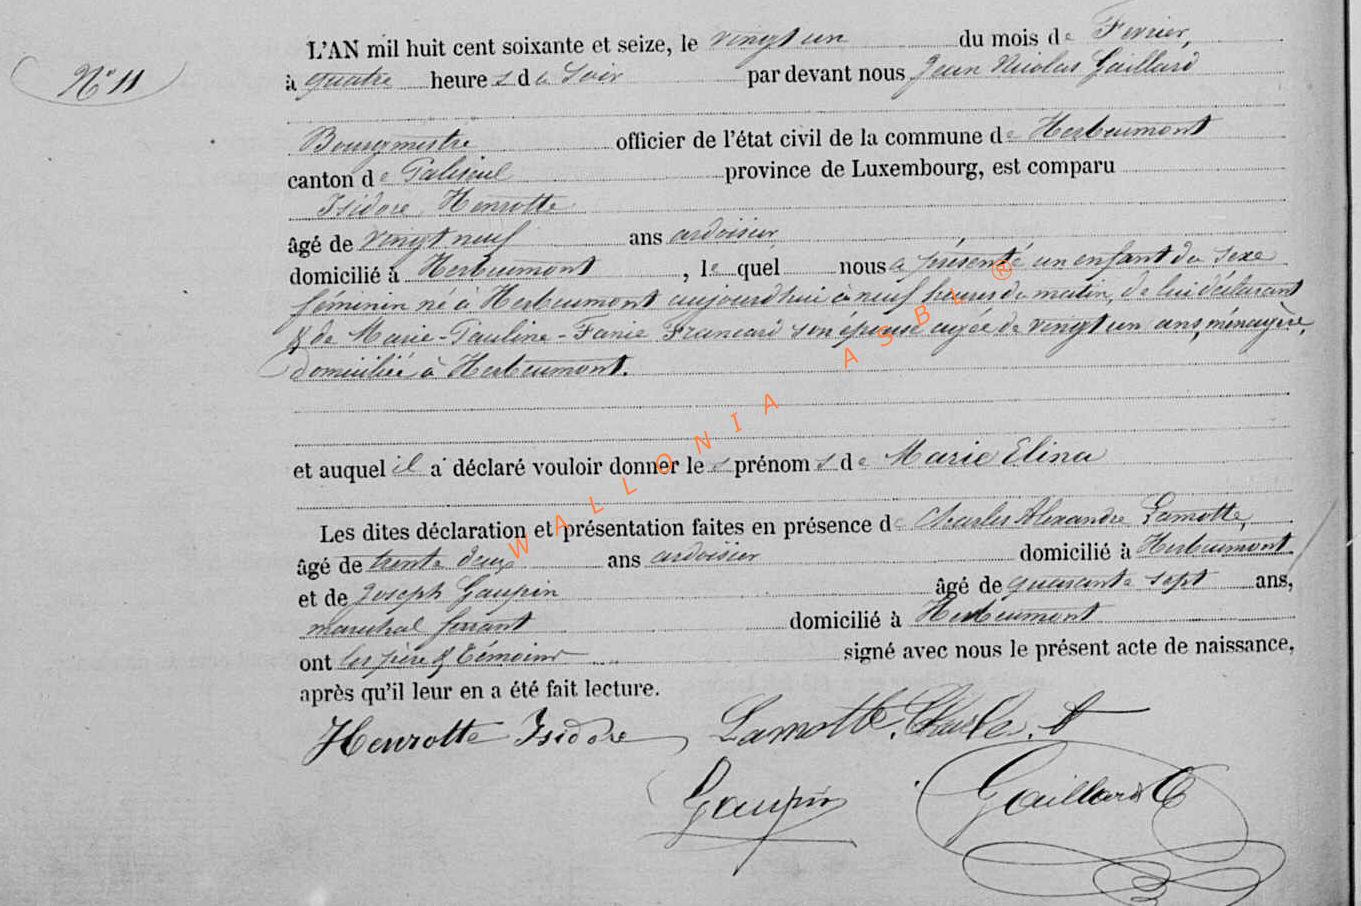 N° 11
L'AN mil huit cent soixante et seize, le vingt un du mois de Fevrier,
à quatre heures du soir par devant nous Jean Nicolas Gaillard
Bourgmestre officier de l'état civil de la commune de Herbeumont
canton de Paliseul province de Luxembourg, est comparu
Isidore Henrotte
âgé de vingt neuf ans ardoisier
domicilié à Herbeumont, le quel nous a présenté un enfant du sexe
féminin né à Herbeumont aujourd'hui à neuf heures du matin, de lui déclarant
& de Marie-Pauline-Fanie Francard son épouse agée de vingt un ans, ménagère,
domiciliée à Herbeumont.
et auquel il a déclaré vouloir donner les prénoms de Marie Elina
Les dites déclaration et présentation faites en présence de Charles Alexandre Lamotte,
âgé de trente deux ans ardoisier domicilié à Herbeumont
et de Joseph Gaupin âgé de quarante sept ans,
marechal ferrant domicilié à Herbeumont
ont les père & témoins signé avec nous le présent acte de naissance,
après qu'il leur en a été fait lecture.
Henrotte Isidore Lamotte, Charles. A
Gaupin Gaillard
WALLONIA ASBL ®